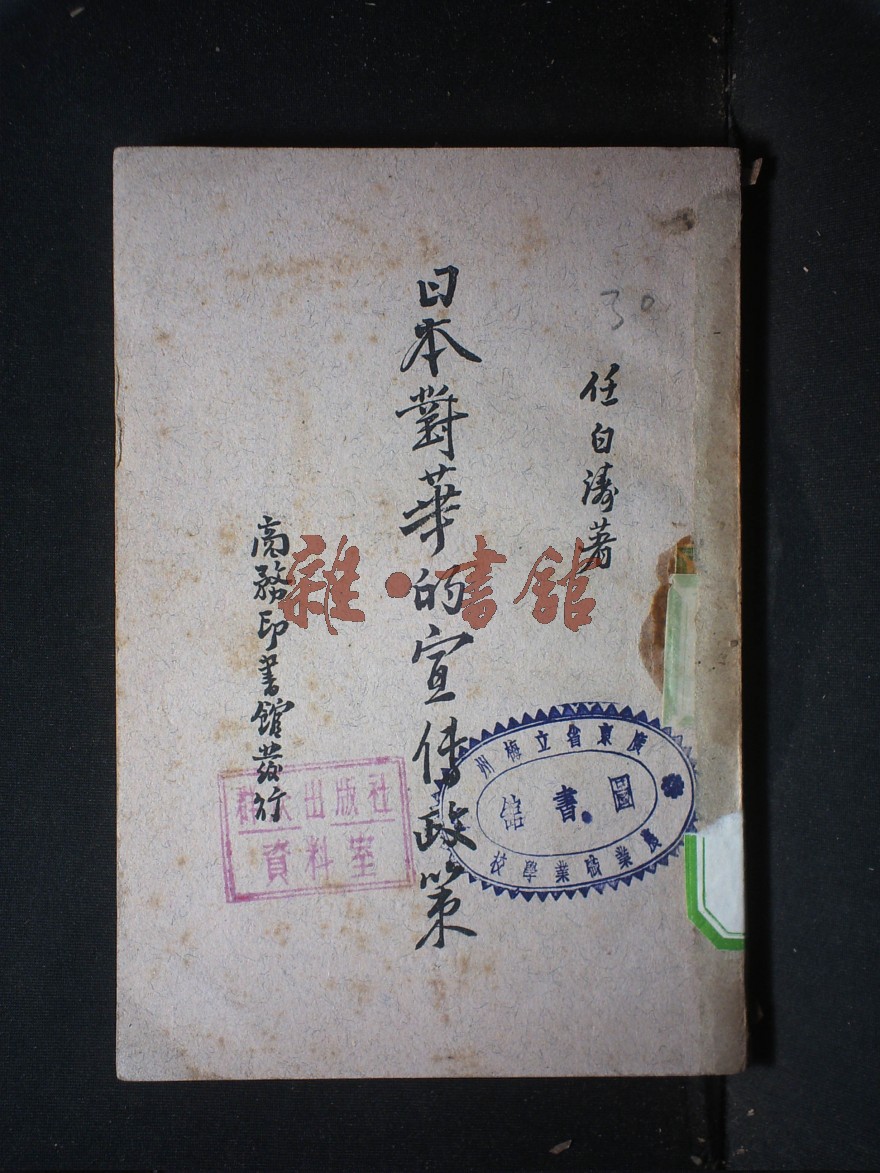 任白濤著
日本對華的宣傳政策
商務印書館發行
30
雜·書館
廣東省立梅州
圖書館
農業職業學校
群众出版社
資料室